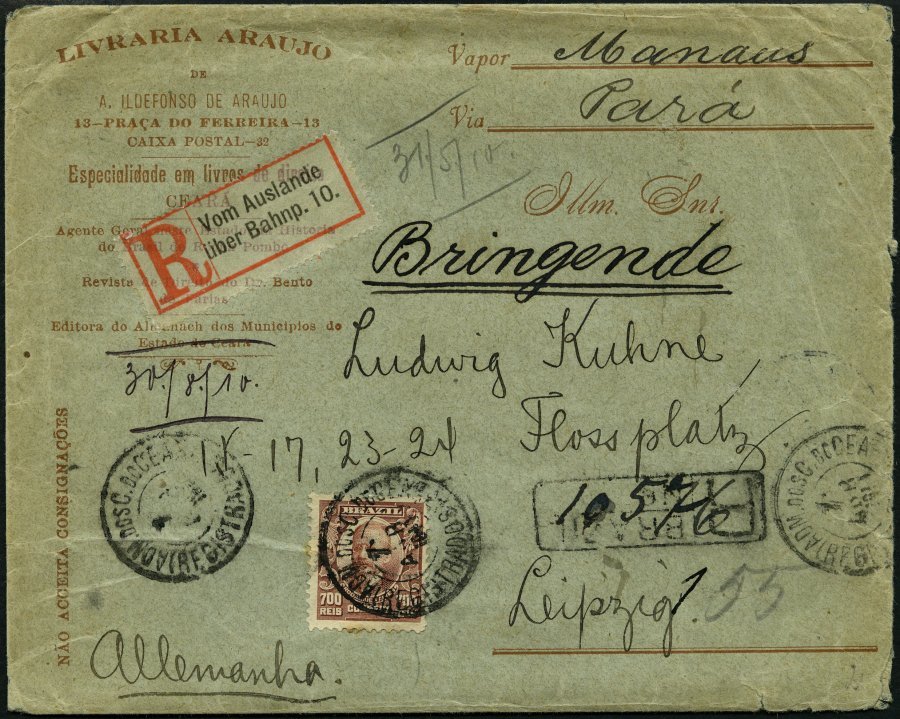 LIVRARIA ARAUJO
DE
A. ILDEFONSO DE ARAUJO
13—PRAÇA DO FERREIRA—13
CAIXA POSTAL—32
Especialidade em livros de direito
CEARÁ
Agente Geral neste Estado da Historia
do Brasil de R. Pombo
Revista de Direito do Dr. Bento
de Farias
Editora do Almanach dos Municipios do
Estado do Ceará
NÃO ACCEITA CONSIGNAÇÕES
R
Vom Auslande
über Bahnp. 10.
Vapor Manaus
Via Pará
31/5/10.
Illm. Snr.
Bringende
Ludwig Kuhne
30/8/10.
17, 23-24
Flossplatz
ADM. DOS C. DO CEARÁ
(REGISTRADO)
BRAZIL
700
REIS
BRAZIL
10576
Leipzig 1
55
Allemanha.